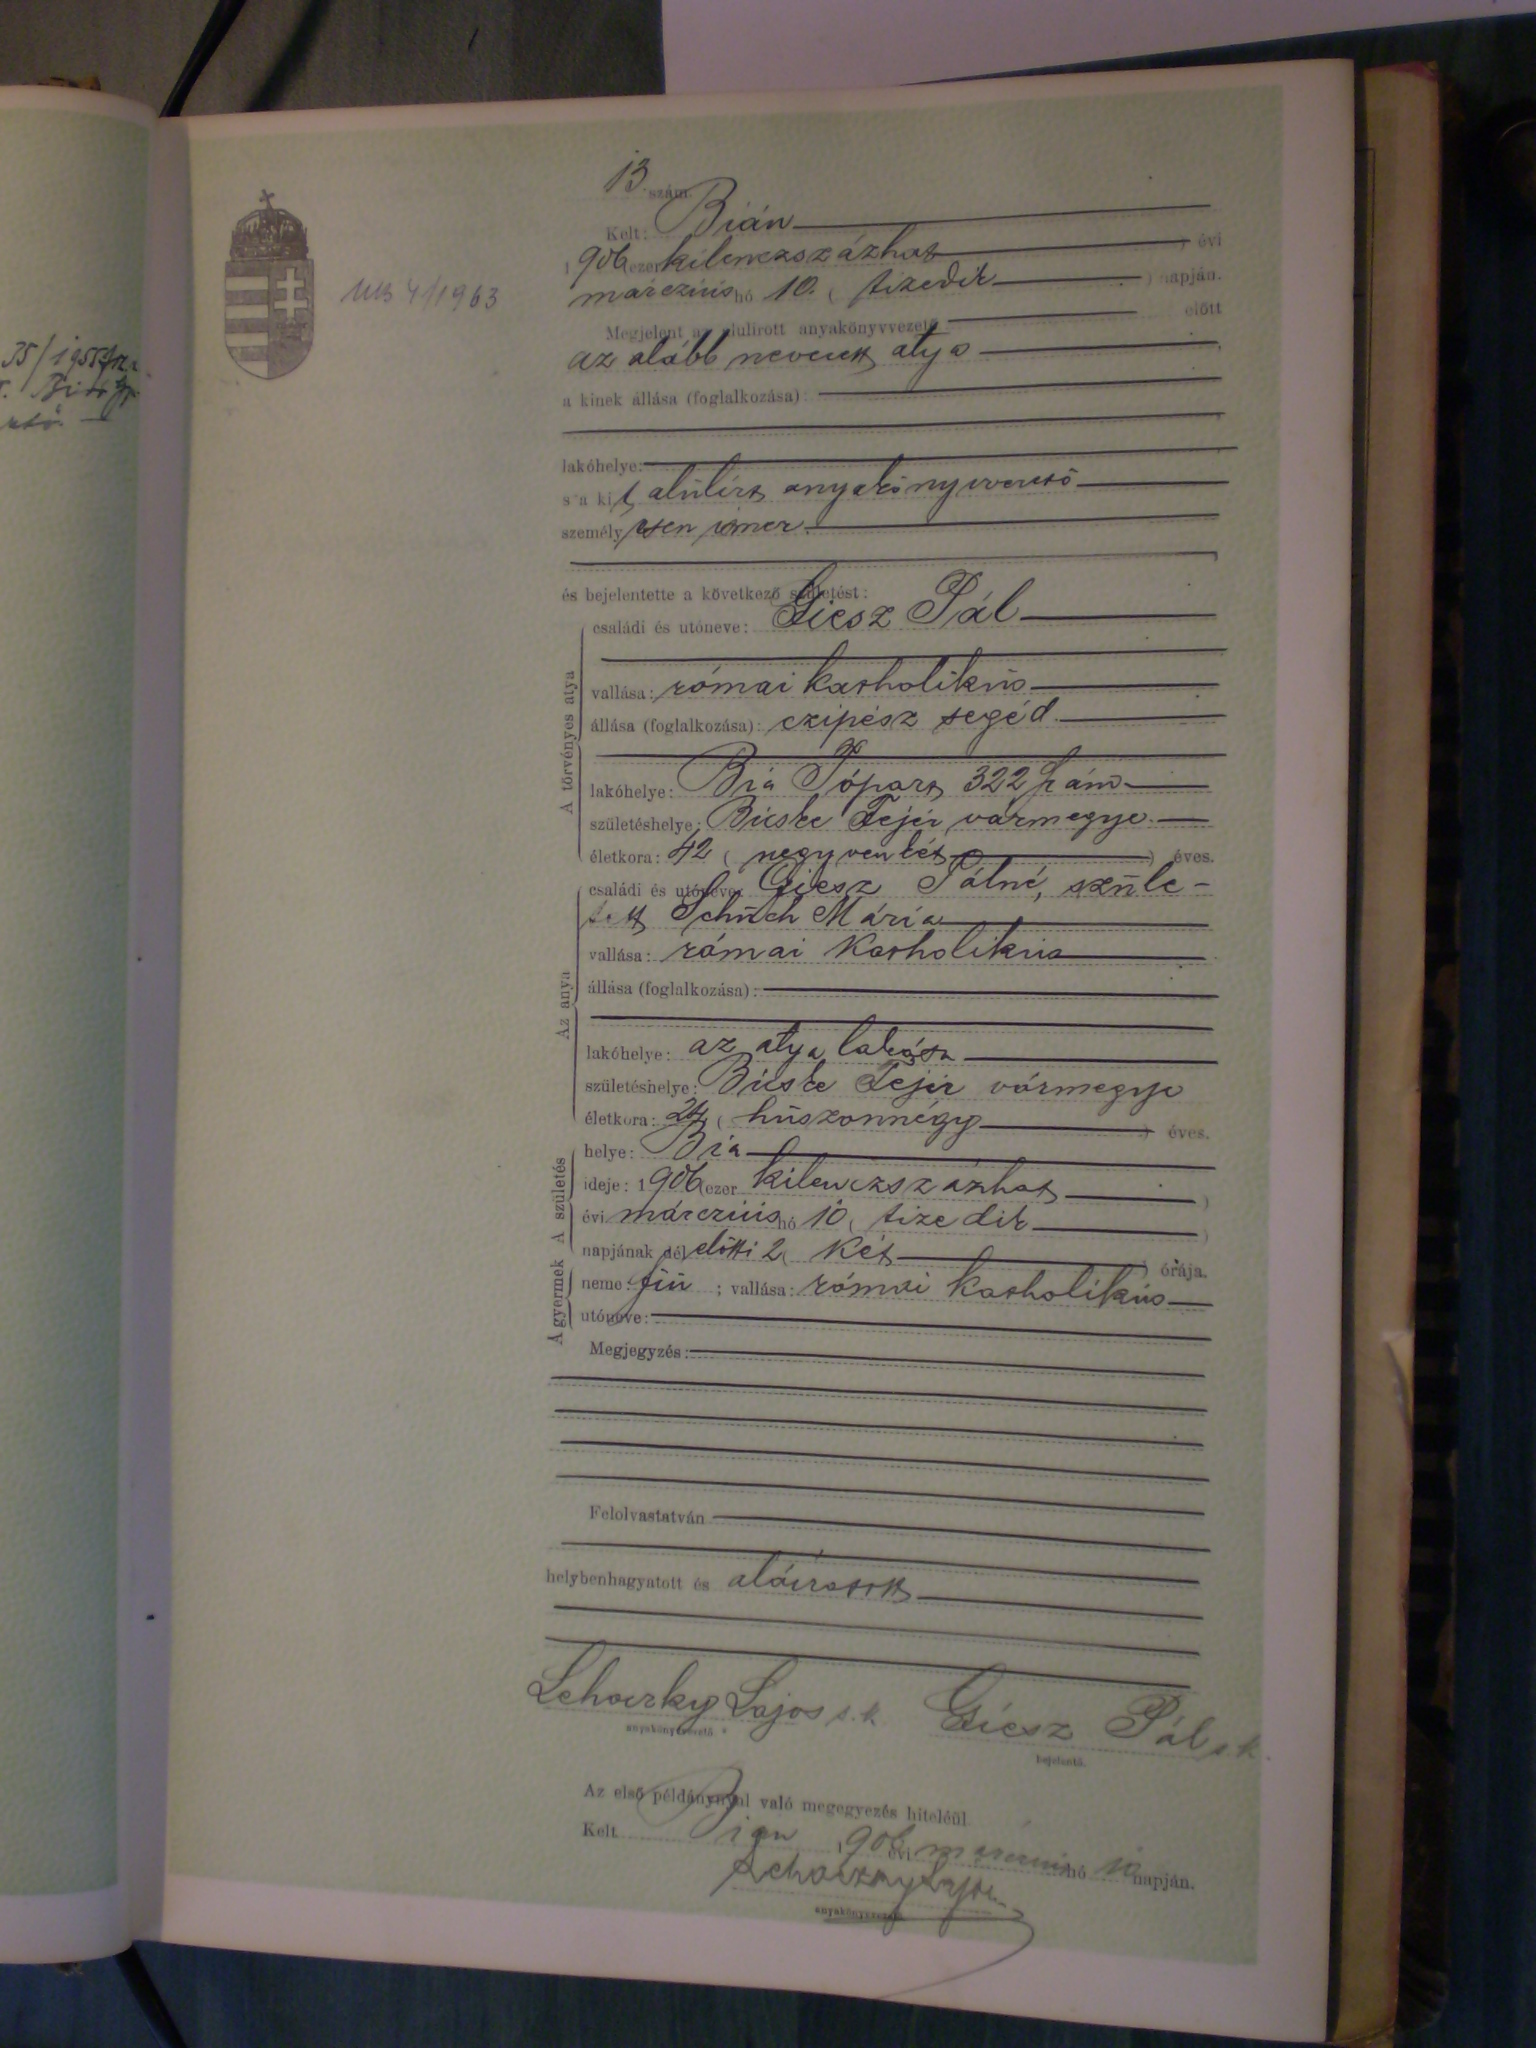 35/1955
13. szám.
Kelt: Bián
1906 ezer kilenczszázhat ) évi
márczius hó 10. ( tizedik ) napján.
MB 4/1963
Megjelent az alulírott anyakönyvvezető előtt
az alább nevezett atya
a kinek állása (foglalkozása):
lakóhelye:
s a kit alulírt anyakönyvvezető
személyesen ismer.
és bejelentette a következő születést:
A törvényes atya
családi és utóneve: Giesz Pál
vallása: római katholikus
állása (foglalkozása): czipész segéd.
lakóhelye: Bia Tópart 322 szám
születéshelye: Bicske Fejér vármegye.
életkora: 42 ( negyvenkét ) éves.
Az anya
családi és utóneve: Giesz Pálné, szüle-
tett Schuch Mária
vallása: római katholikus
állása (foglalkozása):
lakóhelye: az atya lakása
születéshelye: Bicske Fejér vármegye
életkora: 24 ( huszonnégy ) éves.
A születés
helye: Bia
ideje: 1906 ezer kilenczszázhat )
évi márczius hó 10 ( tizedik )
napjának dél előtti 2 ( két ) órája.
A gyermek
neme: fiú ; vallása: római katholikus
utóneve:
Megjegyzés:
Felolvastatván
helybenhagyatott és aláíratott
Lehoczky Lajos s.k. Giesz Pál s.k.
anyakönyvvezető. bejelentő.
Az első példánynyal való megegyezés hiteléül
Kelt Bian 1906 évi márczius hó 10 napján.
Lehoczky Lajos
anyakönyvvezető.